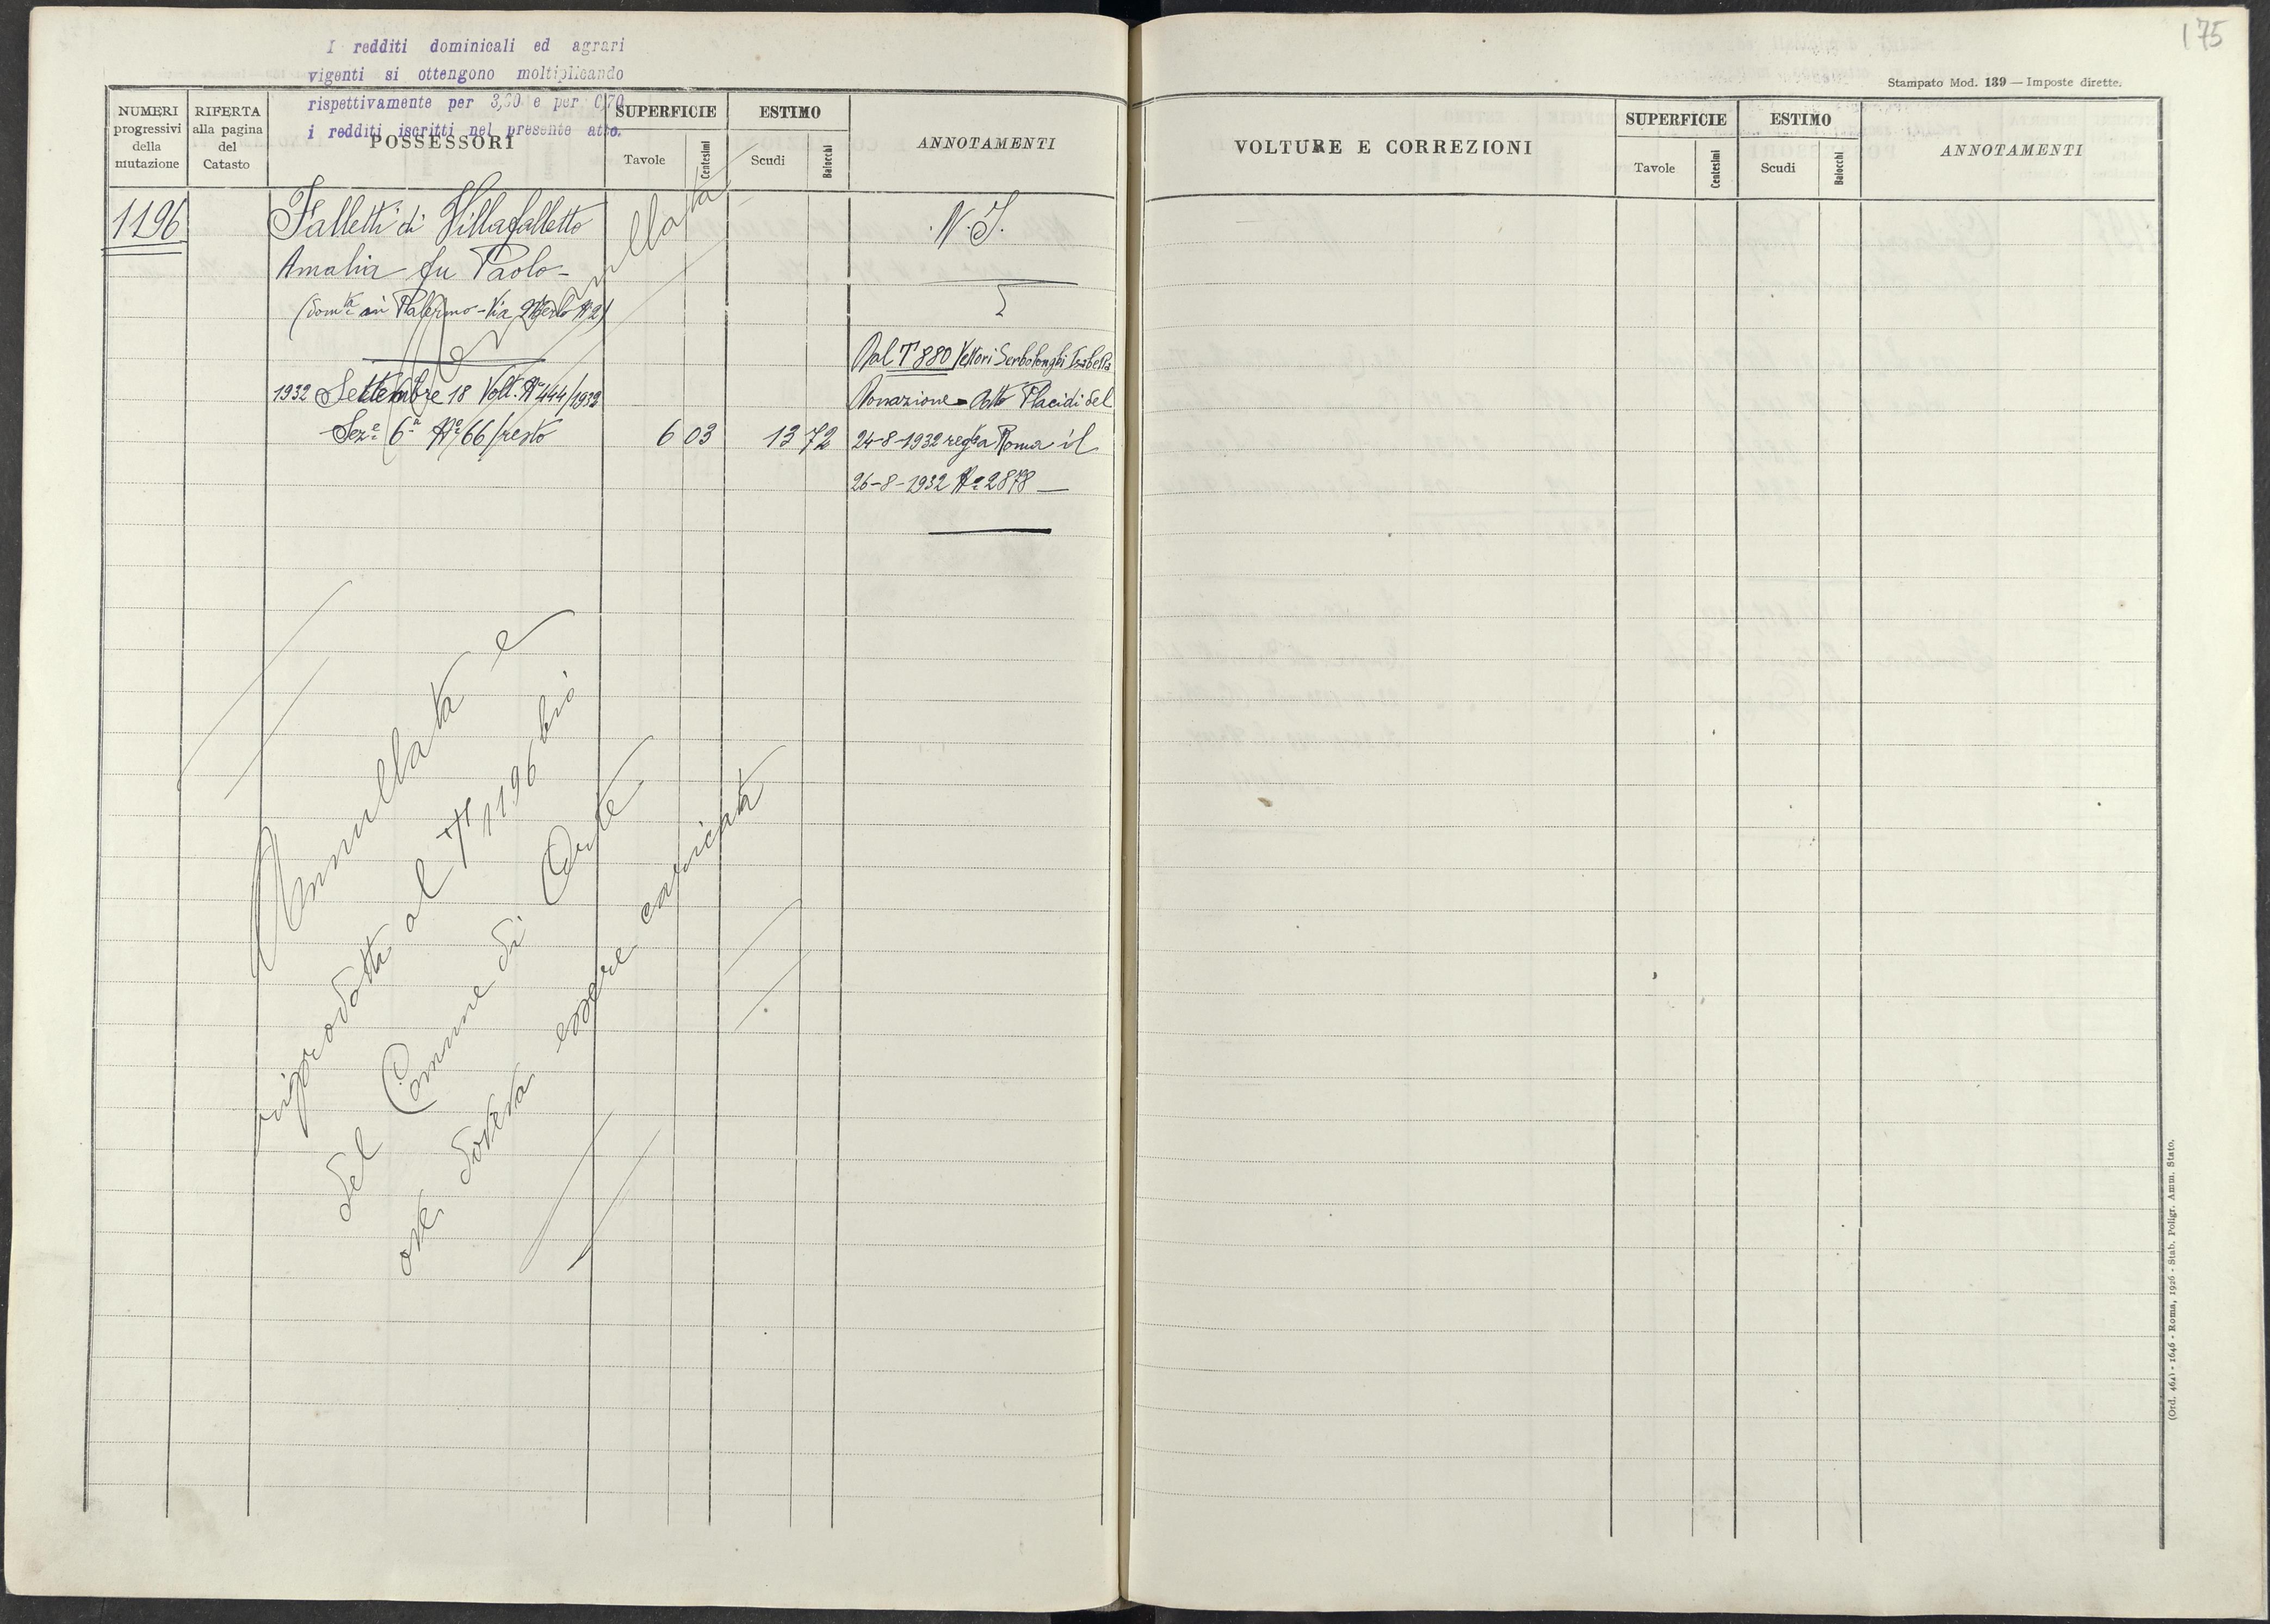 175
I redditi dominicali ed agrari
vigenti si ottengono moltiplicando
rispettivamente per 3,30 e per 0,70
i redditi iscritti nel presente atto.
Stampato Mod. 139 — Imposte dirette.
NUMERI progressivi della mutazione
RIFERTA alla pagina del Catasto
POSSESSORI
SUPERFICIE
Tavole Centesimi
ESTIMO
Scudi Baiocchi
ANNOTAMENTI
VOLTURE E CORREZIONI
SUPERFICIE
Tavole Centesimi
ESTIMO
Scudi Baiocchi
ANNOTAMENTI
1196 Falletti di Villafalletto N. I.
Amalia fu Paolo
(domta in Palermo - Via Merlo No 2)
Annullata
Dal T 880 Vettori Serbolonghi Isabella
1932 Settembre 18 Volt. No 444/1932 Donazione - Atto Placidi del
Seze 6a No 66/resto 6 03 13 72 24-8-1932 regta Roma il
26-8-1932 No 2878 —
Annullata e
riprodotta al T 1196 bis
del Comune di Orte
ove doveva essere caricata
(Ord. 464) - 1646 - Roma, 1926 - Stab. Poligr. Amm. Stato.